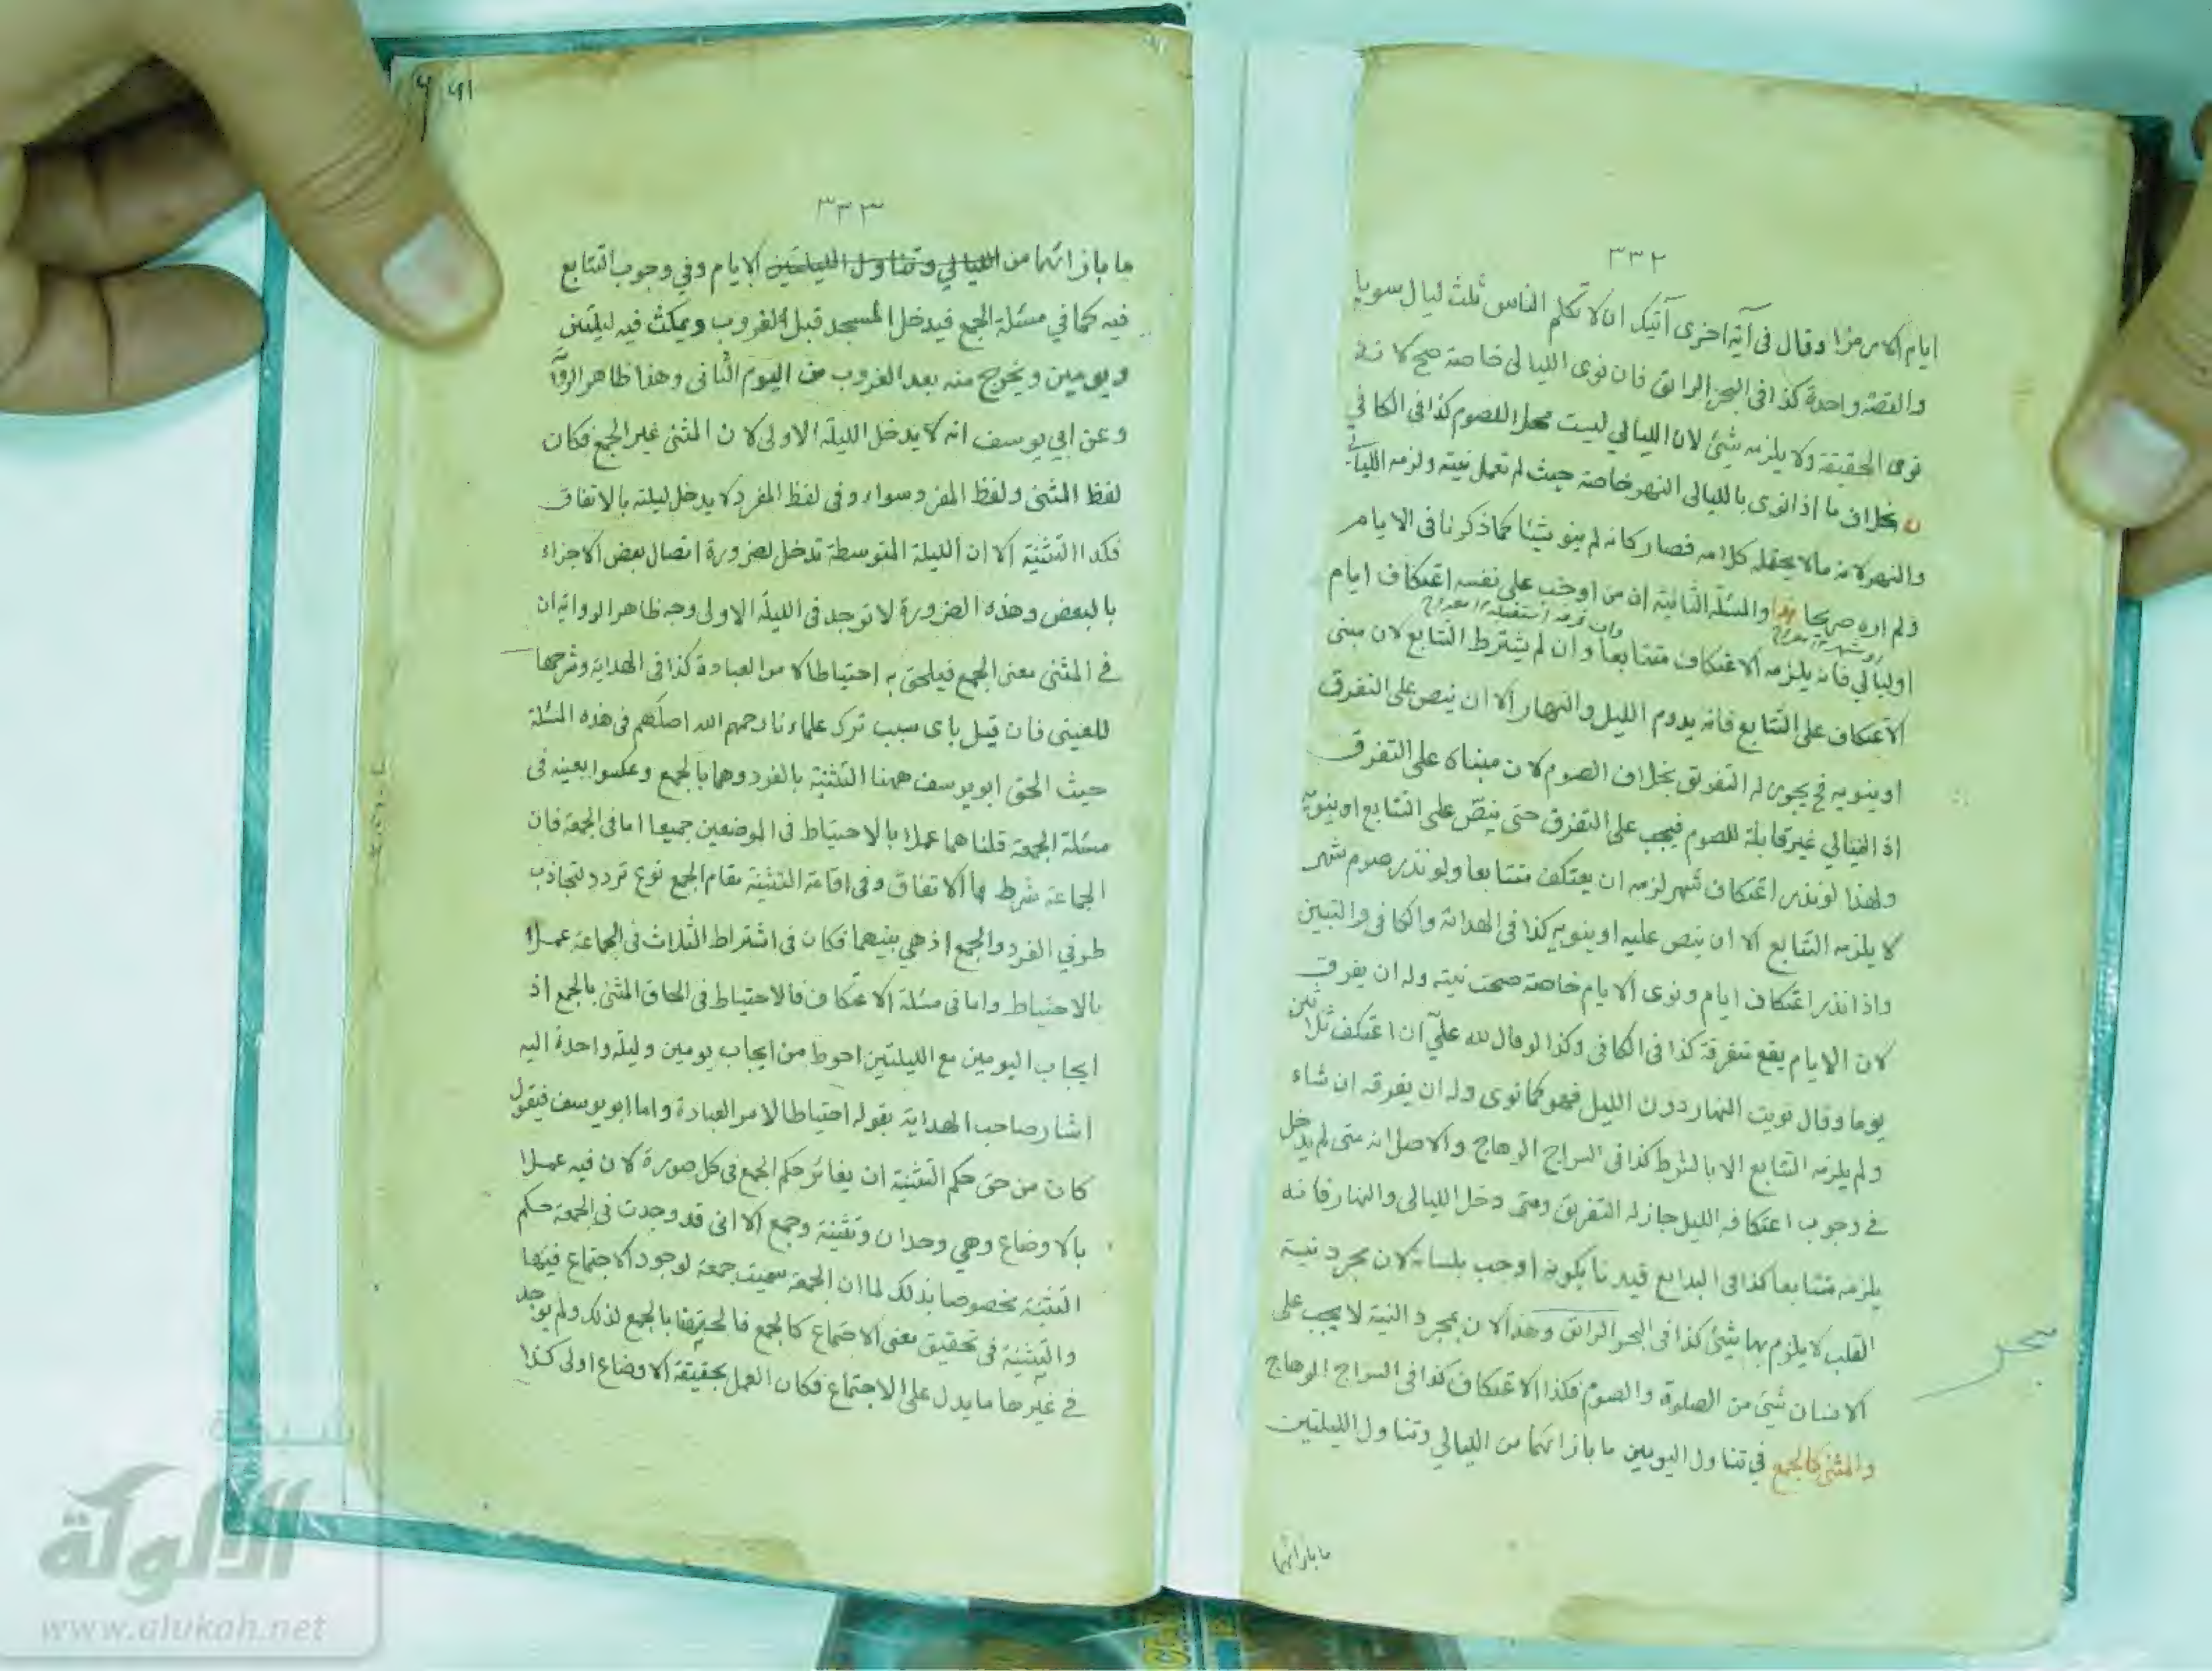 ٣٣٢
ايام الا رمزا وقال فى آية اخرى آيتك ان لا تكلم الناس ثلث ليال سويا
والقصة واحدة كذا فى البحر الرائق فان نوى الليالى خاصة صح لانه
نوى الحقيقة ولا يلزمه شيئ لان الليالي ليست محل الصوم كذا فى الكافي
بخلاف ما اذا نوى بالليالى النهر خاصة حيث لم تعمل نيته ولزمه الليالي
والنهر لانه مالا يحتمله كلامه فصار كانه لم ينو شيئا كما ذكرنا فى الايام
ولم اره صريحا والمسئلة الثانية ان من اوجب على نفسه اعتكاف ايام
اوليالي فانه يلزمه الاعتكاف متتابعا وان لم يشترط التتابع لان مبنى
الاعتكاف على التتابع فانه يدوم الليل والنهار الا ان ينص على التفرق
او ينويه فح يجوز له التفريق بخلاف الصوم لان مبناه على التفرق
اذ الليالي غير قابلة للصوم فيجب على التفرق حتى ينص على التتابع او ينويه
ولهذا لو نذر اعتكاف شهر لزمه ان يعتكف متتابعا ولو نذر صوم شهر
لا يلزمه التتابع الا ان ينص عليه او ينويه كذا فى الهداية والكافى والتبين
واذا نذر اعتكاف ايام ونوى الايام خاصة صحت نيته وله ان يفرق
لان الايام يقع متفرقة كذا فى الكافى وكذا لو قال لله علي ان اعتكف ثلاثين
يوما وقال نويت النهار دون الليل فهو كما نوى وله ان يفرقه ان شاء
ولم يلزمه التتابع الا بالشرط كذا فى السراج الوهاج والاصل انه متى لم يدخل
فى وجوب اعتكافه الليل جاز له التفريق ومتى دخل الليالى والنهار فانه
يلزمه متتابعا كذا فى البدايع قيدنا بكونه اوجب بلسانه لان مجرد نية
القلب لا يلزم بها شيئ كذا فى البحر الرائق وهذا لان بمجرد النية لا يجب على
بحر
الانسان شيئ من الصلوة والصوم فكذا الاعتكاف كذا فى السراج الوهاج
والمثنى كالجمع في تناول اليومين ما بازائهما من الليالي وتناول الليلتين
ما بازائهما
٣٣٣
ما بازائهما من الليالي وتناول الليلتين الايام وفي وجوب التتابع
فيه كما في مسئلة الجمع فيدخل المسجد قبل الغروب ويمكث فيه ليلتين
ويومين ويخرج منه بعد الغروب من اليوم الثانى وهذا ظاهر الرواية
وعن ابي يوسف انه لا يدخل الليلة الاولى لان المثنى غير الجمع فكان
لفظ المثنى ولفظ المفرد سواء وفى لفظ المفرد لا يدخل ليلته بالاتفاق
فكذا التثنية الا ان الليلة المتوسطة تدخل لضرورة اتصال بعض الاجزاء
بالبعض وهذه الضرورة لا توجد فى الليلة الاولى وجه ظاهر الرواية ان
فى المثنى معنى الجمع فيلحق به احتياطا لامر العبادة كذا فى الهداية وشرحها
للعينى فان قيل باى سبب ترك علماءنا رحمهم الله اصلهم فى هذه المسئلة
حيث الحق ابو يوسف ههنا التثنية بالفرد وهما بالجمع وعكسوا بعينه فى
مسئلة الجمعة قلنا هما عملا بالاحتياط فى الموضعين جميعا اما فى الجمعة فان
الجماعة شرط بالاتفاق وفى اقامة التثنية مقام الجمع نوع تردد لتجاذب
طرفي الفرد والجمع اذ هي بينهما فكان فى اشتراط الثلاث فى الجماعة عملا
بالاحتياط واما فى مسئلة الاعتكاف فالاحتياط فى الحاق المثنى بالجمع اذ
ايجاب اليومين مع الليلتين احوط من ايجاب يومين وليلة واحدة اليه
اشار صاحب الهداية بقوله احتياطا لامر العبادة واما ابو يوسف فيقول
كان من حق حكم التثنية ان يغائر حكم الجمع فى كل صورة لان فيه عملا
بالاوضاع وهي وحدان وتثنية وجمع الا انى قد وجدت في الجمعة حكم
التثنية مخصوصا بذلك لما ان الجمعة سميت جمعة لوجود الاجتماع فيها
والتثنية فى تحقيق معنى الاجتماع كالجمع فالحقتها بالجمع لذلك ولم يوجد
فى غيرها ما يدل على الاجتماع فكان العمل بحقيقة الاوضاع اولى كذا
شبكة
الألوكة
www.alukah.net